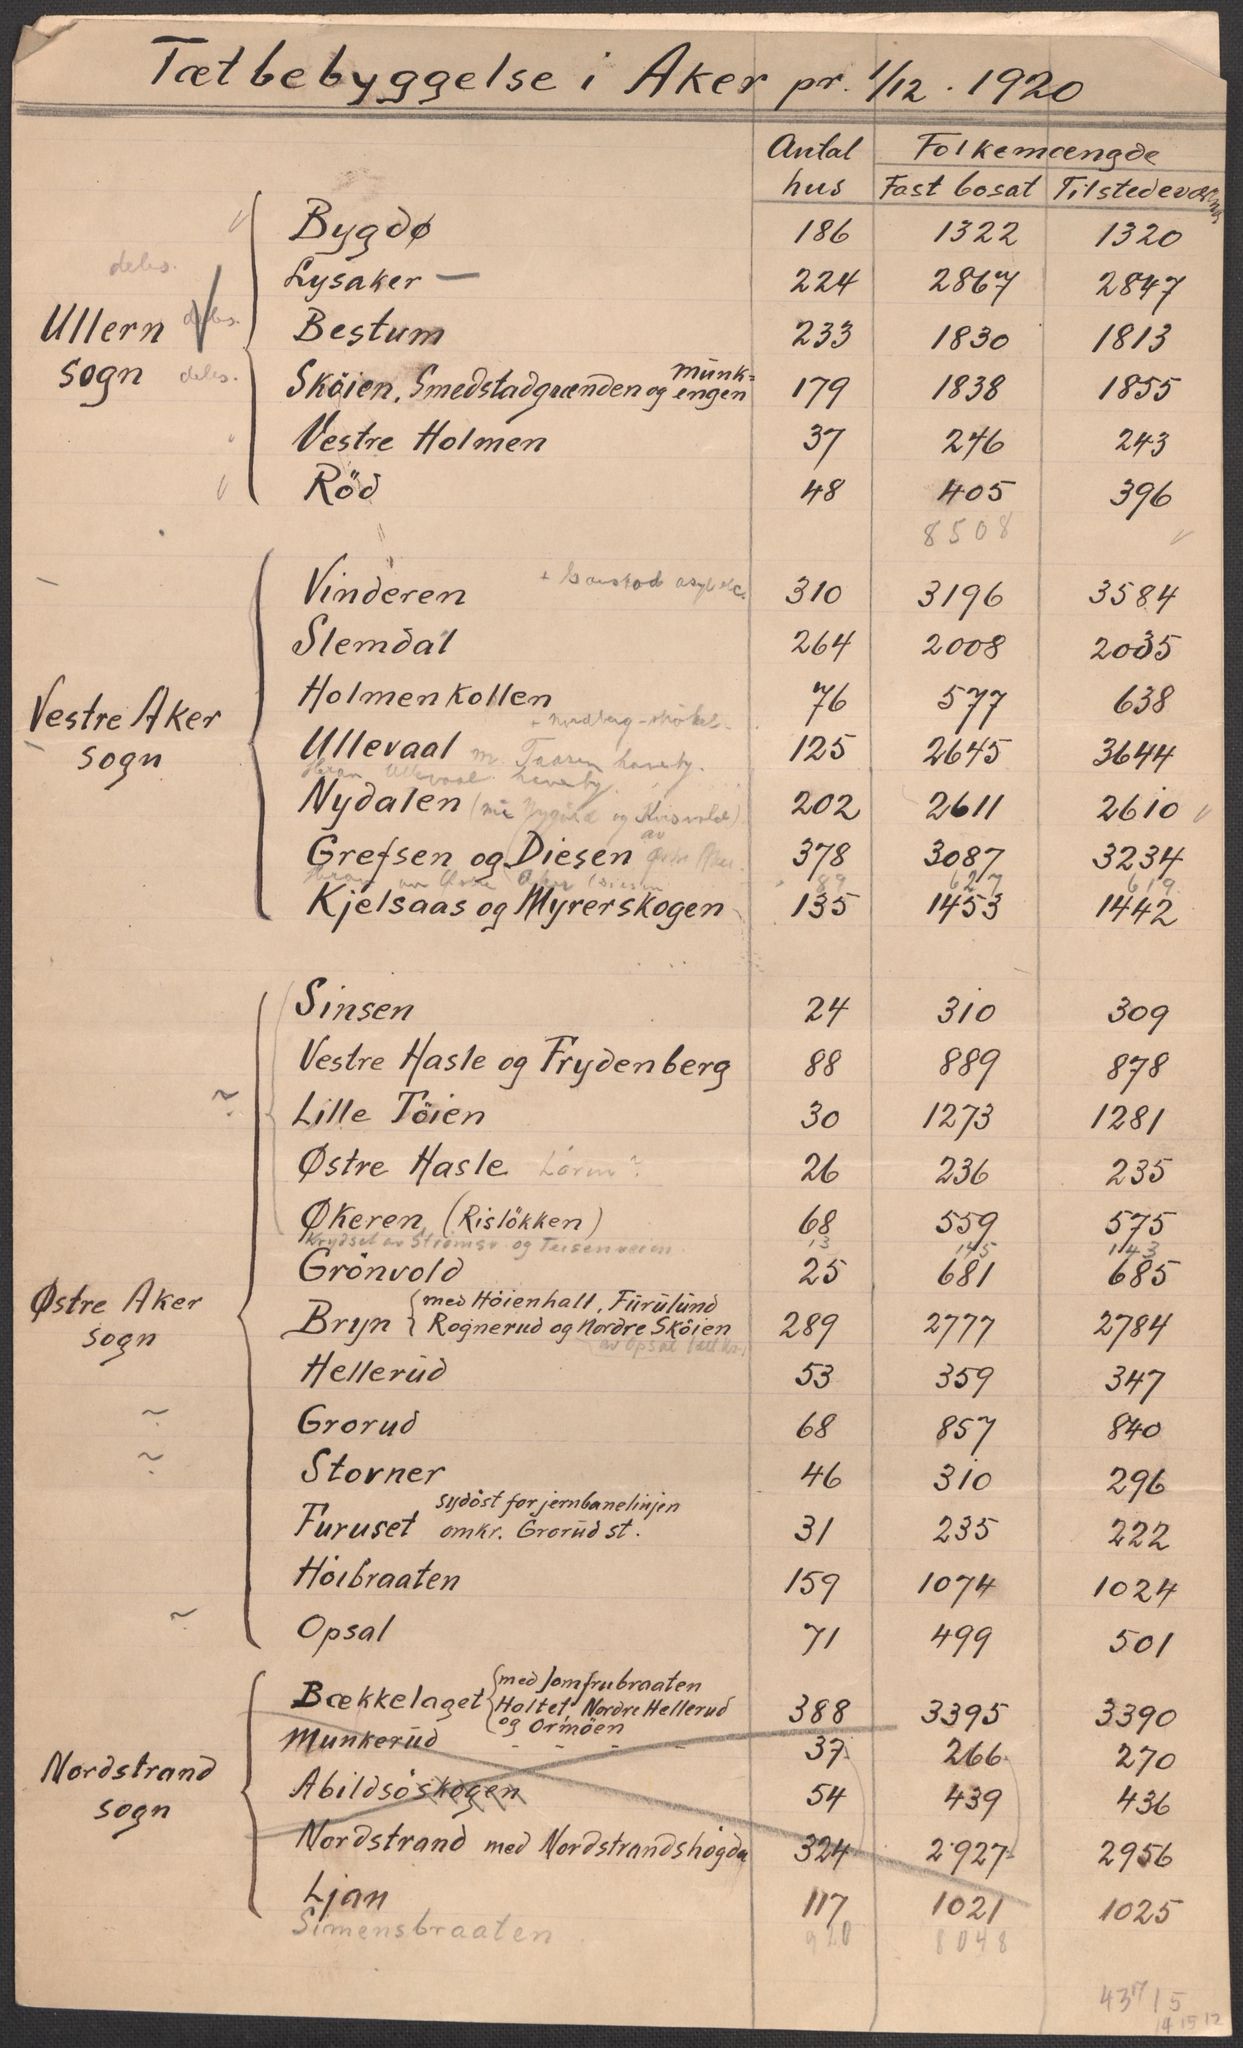 Tætbebyggelse i Aker pr. 1/12. 1920
Antal hus Folkemængde
Fast bosat Tilstedeværende
Ullern sogn
Bygdø 186 1322 1320
deles.
Lysaker — 224 2867 2847
deles.
Bestum 233 1830 1813
deles.
Sköien, Smedstadgrænden og Munk=engen 179 1838 1855
Vestre Holmen 37 246 243
Röd 48 405 396
8508
Vestre Aker sogn
Vinderen + Gaustad asyl etc. 310 3196 3584
Slemdal 264 2008 2035
Holmenkollen 76 577 638
+ Nordberg
Ullevaal m. Taasen haveby. 125 2645 3644
Ullevaal haveby.
Nydalen 202 2611 2610
Grefsen og Diesen av Østre Aker 378 3087 3234
Herav av Østre Aker (Diesen 89 627 619
Kjelsaas og Myrerskogen 135 1453 1442
Østre Aker sogn
Sinsen 24 310 309
Vestre Hasle og Frydenberg 88 889 878
Lille Töien 30 1273 1281
Østre Hasle Lören? 26 236 235
Økeren, (Rislökken) 68 559 575
Krydset av Strømsv. og Teisenveien. 13 145 143
Grönvold 25 681 685
Bryn {med Höienhall, Furulund
Rognerud og Nordre Sköien 289 2777 2784
av Opsal
Hellerud 53 359 347
Grorud 68 857 840
Stovner 46 310 296
Furuset sydöst for jernbanelinjen
omkr. Grorud st. 31 235 222
Höibraaten 159 1074 1024
Opsal 71 499 501
Nordstrand sogn
Bækkelaget {med Jomfrubraaten
Holtet, Nordre Hellerud
og Ormöen 388 3395 3390
Munkerud 37 266 270
Abildsöskogen 54 439 436
Nordstrand med Nordstrandshögda 324 2927 2956
Ljan 117 1021 1025
Simensbraaten 920 8048
43715
14 15 12